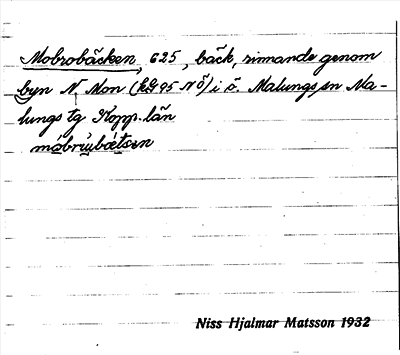 Mobrobäcken, 625, bäck, rinnande genom
byn N. Mon (kg 95 NÖ) i ö. Malungs sn Ma-
lungs tg Kopp. län
Niss Hjalmar Matsson 1932